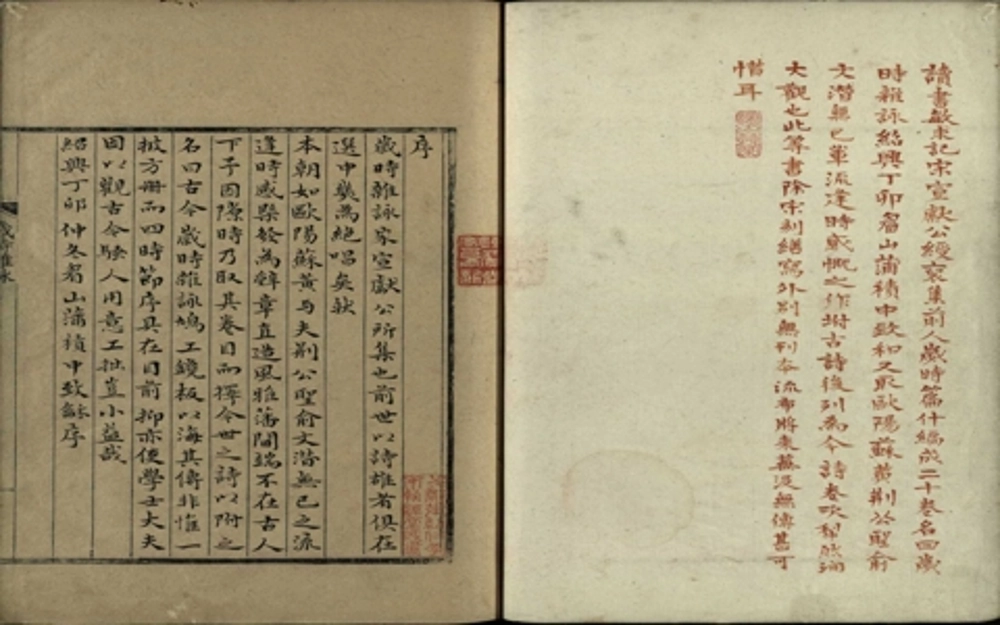 讀書敏求記宋宣獻公綬裒集前人歲時篇什編成二十卷名曰歲
時雜詠紹興丁卯眉山蒲積中致和又取歐陽蘇黃荆公聖俞
文潛無已輩流逢時感慨之作附古詩後列為今詩卷犁然洵
大觀也此等書除宋刻繕寫外別無刊本流布將來蕪没無傳甚可
惜耳
序
歲時雜詠家宣獻公所集也前世以詩雄者俱在
選中幾為絕唱矣狀
本朝如歐陽蘇黃与夫荆公聖俞文潛無已之流
逢時感槩發為辭章直造風雅藩閫端不在古人
下予因隙時乃取其卷目而擇今世之詩以附之
名曰古今歲時雜詠鳩工鏤板以海其傳非惟一
披方冊而四時節序具在目前抑亦便學士大夫
因以觀古今騷人用意工拙豈小益哉
紹興丁卯仲冬眉山蒲積中致龢序